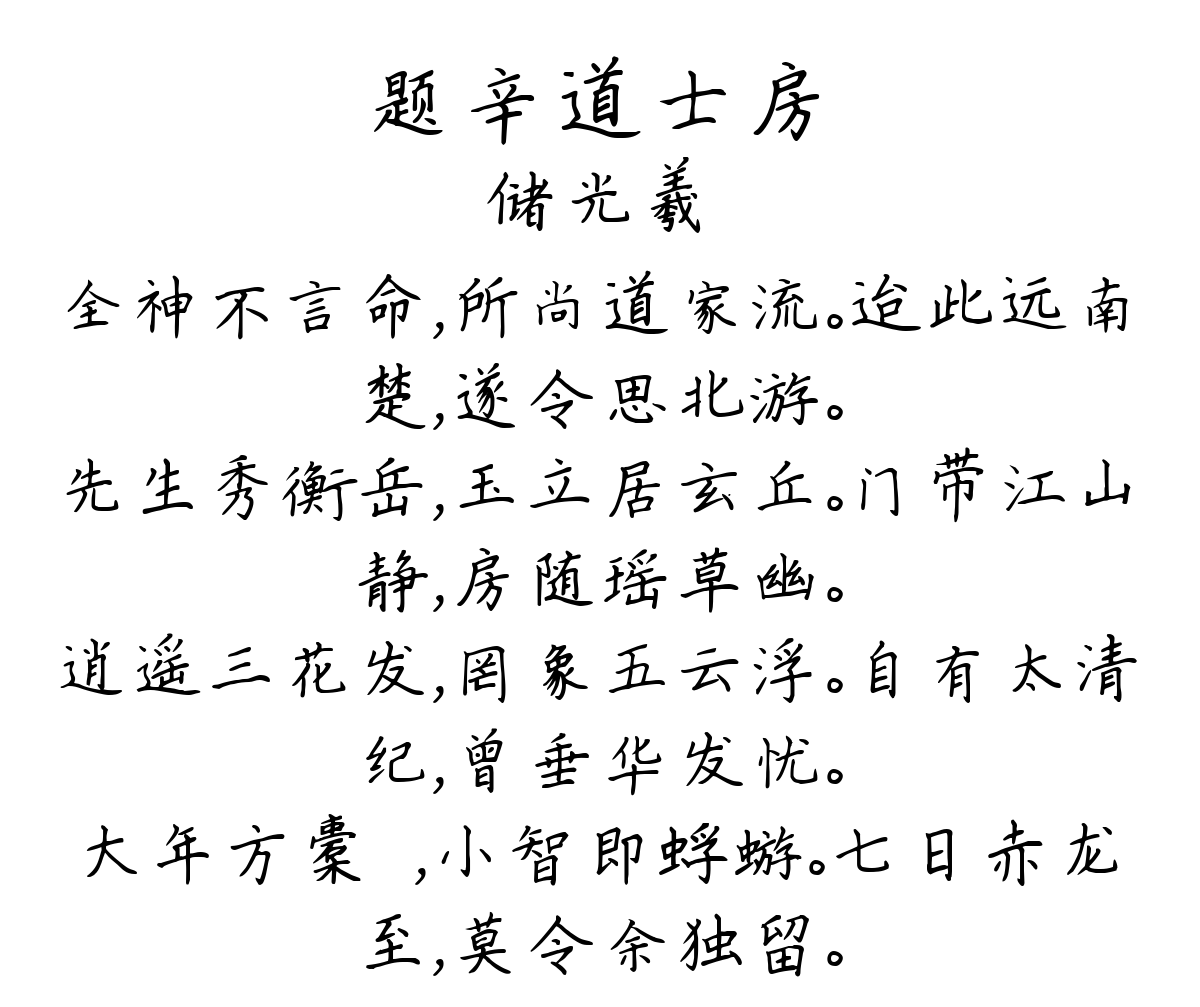 题辛道士房
储光羲
全神不言命,所尚道家流。迨此远南
楚,遂令思北游。
先生秀衡岳,玉立居玄丘。门带江山
静,房随瑶草幽。
逍遥三花发,罔象五云浮。自有太清
纪,曾垂华发忧。
大年方橐 ,小智即蜉蝣。七日赤龙
至,莫令余独留。